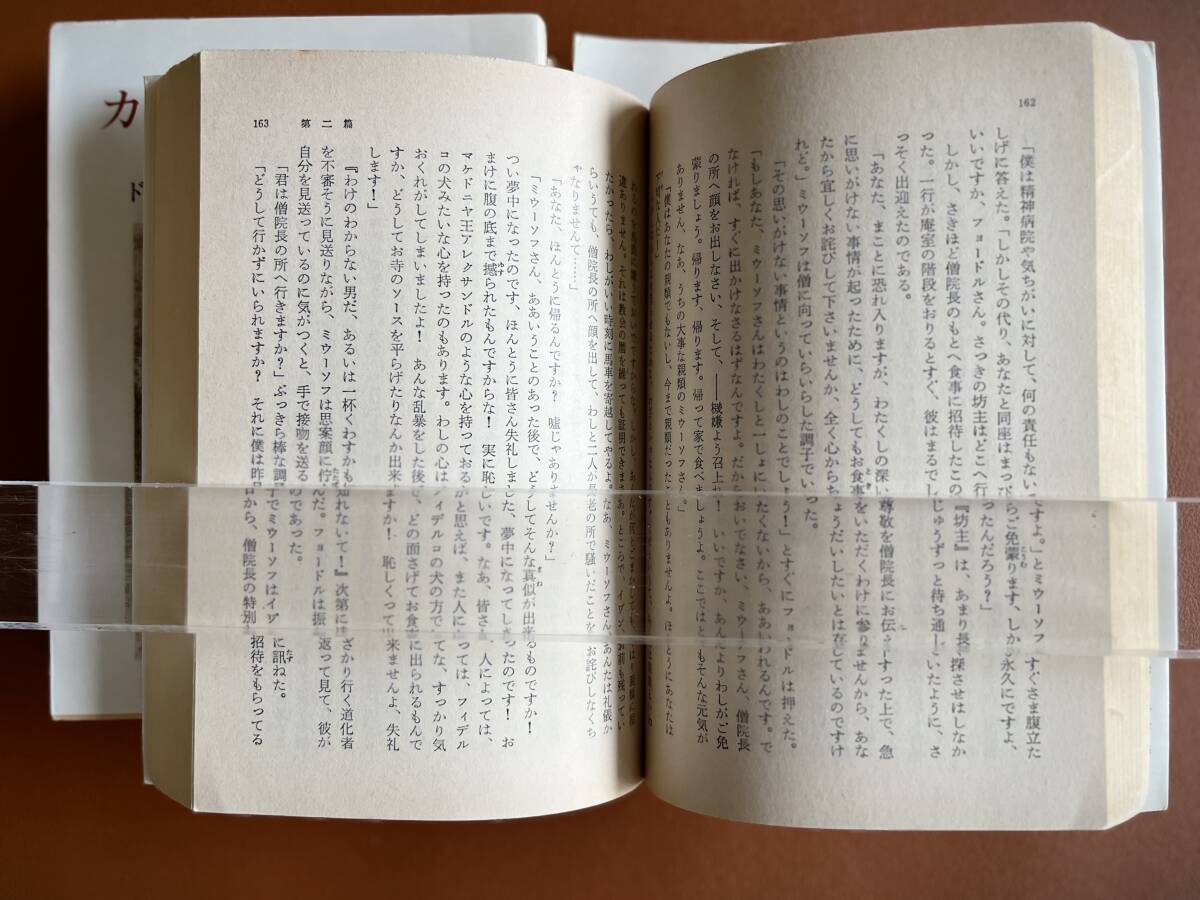 カ
ド
162
「僕は精神病院や気ちがいに対して、何の責任もないですよ。」とミウーソフ すぐさま腹立た
しげに答えた。「しかしその代り、あなたと同座はまっぴらご免蒙ります、しか 永久にですよ、
いいですか、フョードルさん。さっきの坊主はどこへ行ったんだろう?」
しかし、さきほど僧院長のもとへ食事に招待したこの『坊主』は、あまり長 探させはしなか
った。一行が庵室の階段をおりるとすぐ、彼はまるでしじゅうずっと待ち通していたように、さ
っそく出迎えたのである。
「あなた、まことに恐れ入りますが、わたくしの深い尊敬を僧院長にお伝え すった上で、急
に思いがけない事情が起ったために、どうしてもお食事をいただくわけに参りませんから、あな
たから宜しくお詫びして下さいませんか、全く心からちょうだいしたいとは存じているのですけ
れど。」ミウーソフは僧に向っていらいらした調子でいった。
「その思いがけない事情というのはわしのことでしょう!」とすぐにフョードルは押えた。
「もしあなた、ミウーソフさんはわたくしと一しょにいたくないから、ああいわれるんです。で
なければ、すぐに出かけなさるはずなんですよ。だから おいでなさい、ミウーソフさん、僧院長
の所へ顔をお出しなさい、そして、――機嫌よう召上れ! いいですか、あんたよりわしがご免
蒙りましょう。帰ります、帰ります。帰って家で食べましょうよ。ここではとてもそんな元気が
ありません、なあ、うちの大事な親類のミウーソフさん。」
「僕はあなたの親類でもないし、今まで親類だったこともありませんよ。ほんとうにあなたは
163 第二篇
違ありません。それは教会の暦を繰っても証明できまさあ。ところで、イヴン、お前も残ってい
たかったら、わしがいい時刻に馬車を寄越してやるよ。なあ、ミウーソフさん、あんたは礼儀か
らいうても、僧院長の所へ顔を出して、わしと二人が長老の所で騒いだことを お詫びしなくち
ゃなりませんて……」
「あなた、ほんとうに帰るんですか? 嘘じゃありませんか?」
「ミウーソフさん、ああいうことのあった後で、どうしてそんな真似が出来るものですか!
つい夢中になったのです、ほんとうに皆さん失礼しました、夢中になってしまったのです! お
まけに腹の底まで撼られたもんですからな! 実に恥しいです。なあ、皆さ 人によっては、
マケドニヤ王アレクサンドルのような心を持っておるかと思えば、また人に っては、フィデル
コの犬みたいな心を持ったのもあります。わしの心は フィデルコの犬の方で てな、すっかり気
おくれがしてしまいましたよ! あんな乱暴をした後で、どの面さげてお食事に出られるもんで
すか、どうしてお寺のソースを平らげたりなんか出来ますか! 恥しくって 来ませんよ、失礼
します!」
『わけのわからない男だ、あるいは一杯くわすかも知れないて!』次第に ざかり行く道化者
を不審そうに見送りながら、ミウーソフは思案顔に佇んだ。フョードルは振 返って見て、彼が
自分を見送っているのに気がつくと、手で接吻を送る のであった。
「君は僧院長の所へ行きますか?」ぶっきら棒な調子でミウーソフはイヴ に訊ねた。
「どうして行かずにいられますか? それに僕は昨日から、僧院長の特別 招待をもらってる